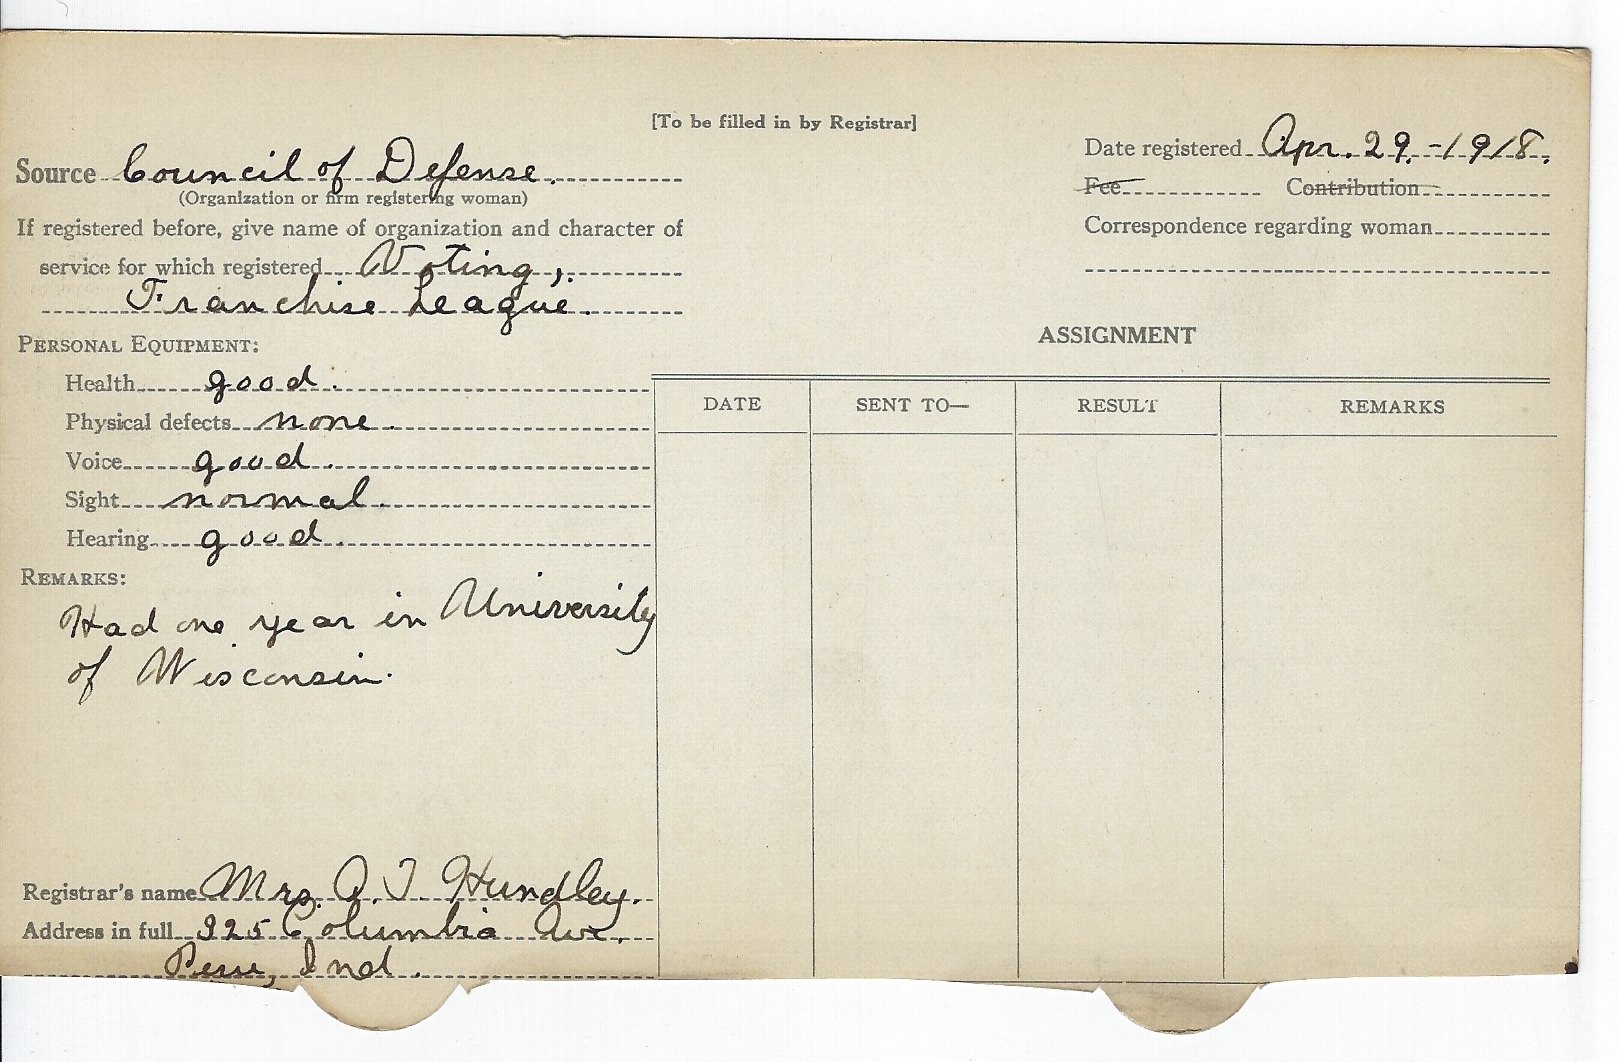 [To be filled in by Registrar]
Source Council of Defense.
(Organization or firm registering woman)
If registered before, give name of organization and character of
service for which registered Voting,
Franchise League.
PERSONAL EQUIPMENT:
Health good.
Physical defects none.
Voice good.
Sight normal.
Hearing good.
REMARKS:
Had one year in University
of Wisconsin.
Registrar's name Mrs. A. T. Hundley.
Address in full 325 Columbia Ave.
Peru, Ind.
Date registered Apr. 29.-1918.
Fee Contribution
Correspondence regarding woman
ASSIGNMENT
DATE SENT TO— RESULT REMARKS